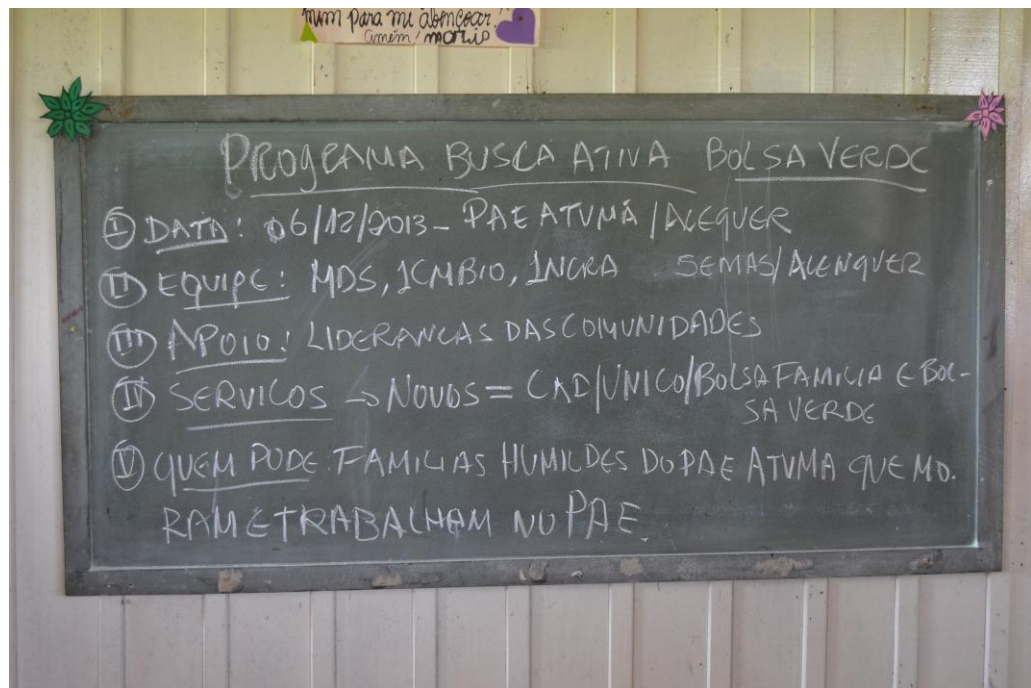 mim para me abençoar!
amém!
PROGRAMA BUSCA ATIVA BOLSA VERDE
I DATA: 06/12/2013- PAE ATUMÃ/ALEQUER
II EQUIPE: MDS, ICMBIO, INCRA SEMAS/ALENQUER
III APOIO: LIDERANCAS DAS COMUNIDADES
IV SERVICOS → NOVOS = CAD/UNICO/BOLSA FAMILIA E BOL-
SA VERDE
V QUEM PODE: FAMILIAS HUMILDES DO PAE ATUMA QUE MO.
RAM E TRABALHAM NO PAE.